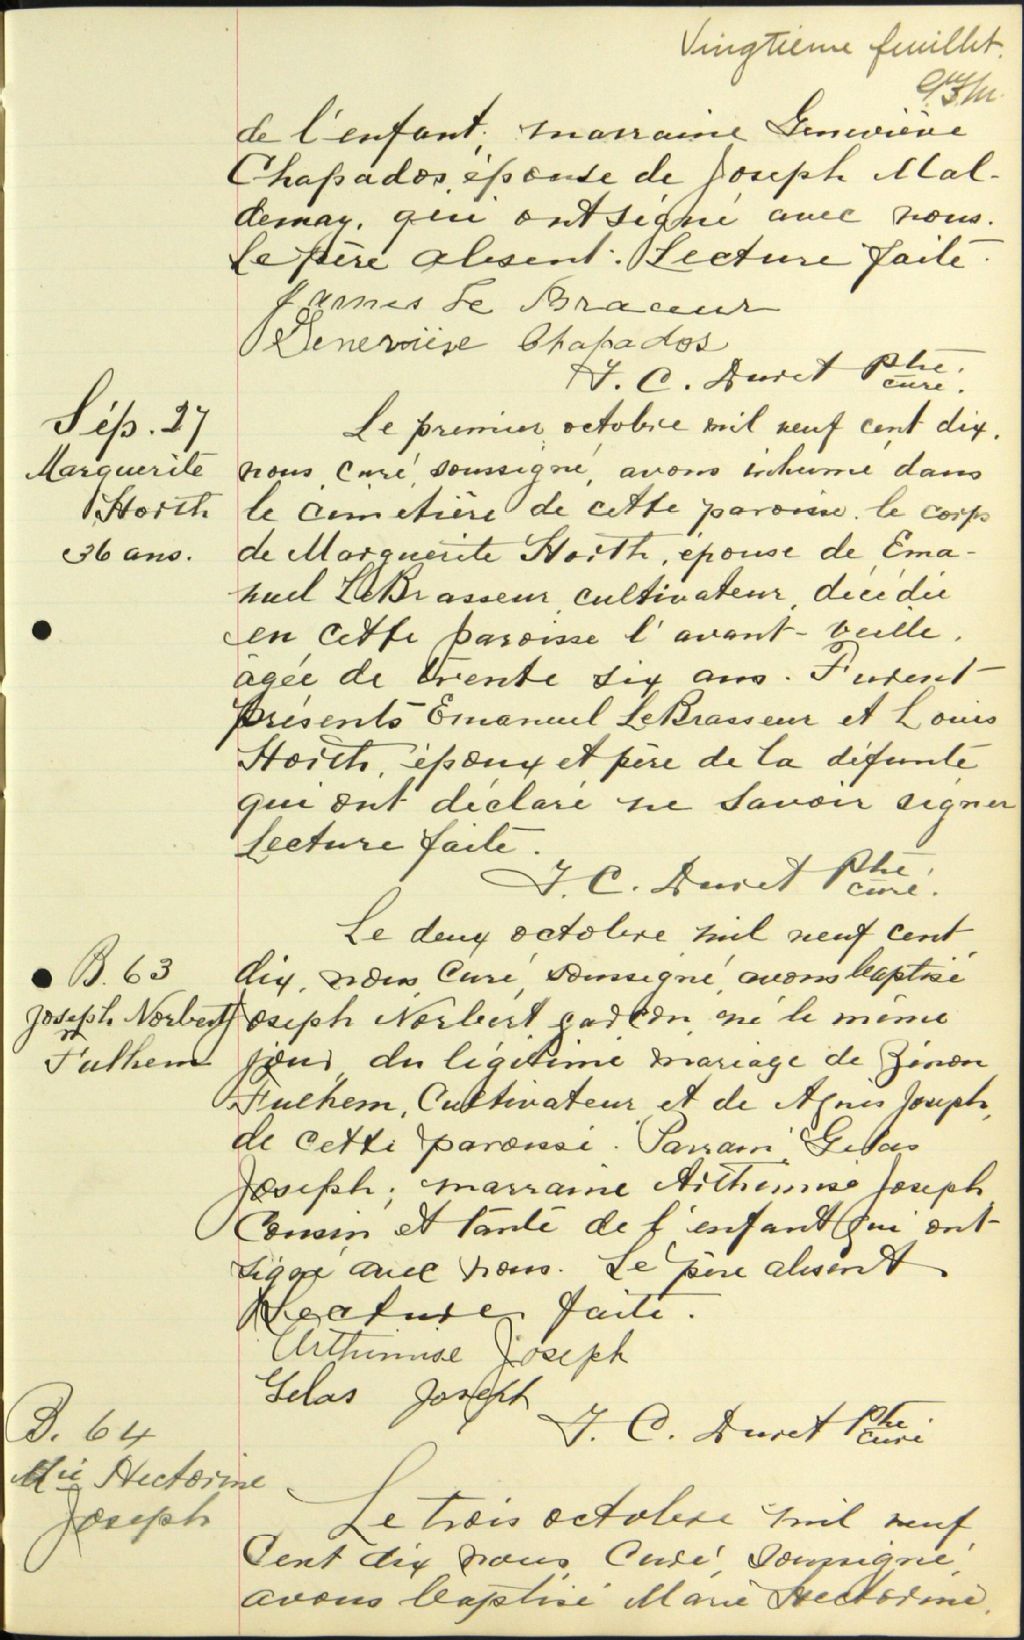 Vingtième feuillet.
de l'enfant; marraine Geneviève
Chapados, épouse de Joseph Mal-
demay, qui ont signé avec nous.
Le père absent. Lecture faite.
James Le Braceur
Geneviève Chapados
J. C. Duret Ptre
curé.
Sép. 27
Marguerite
Horth
36 ans.
Le premier octobre mil neuf cent dix,
nous, curé, soussigné, avons inhumé dans
le cimetière de cette paroisse le corps
de Marguerite Horth, épouse de Ema-
nuel LeBrasseur, cultivateur, décédée
en cette paroisse l'avant-veille,
âgée de trente six ans. Furent
présents Emanuel LeBrasseur et Louis
Horth, époux et père de la défunte
qui ont déclaré ne savoir signer
Lecture faite.
J. C. Duret Ptre
curé.
B. 63
Joseph Norbert
Fulhem
Le deux octobre mil neuf cent
dix, nous, Curé, soussigné, avons baptisé
Joseph Norbert garçon, né le même
jour, du légitime mariage de Zénon
Fulhem, Cultivateur et de Agnès Joseph,
de cette paroisse. Parrain, Gelas
Joseph; marraine Arthimise Joseph
Cousin et tante de l'enfant qui ont
signé avec nous. Le père absent
Lecture faite.
Arthimise Joseph
Gelas Joseph
J. C. Duret Ptre
curé
B. 64
Mie Hectorine
Joseph
Le trois octobre mil neuf
Cent dix nous, Curé, soussigné,
avons baptisé Marie Hectorine,